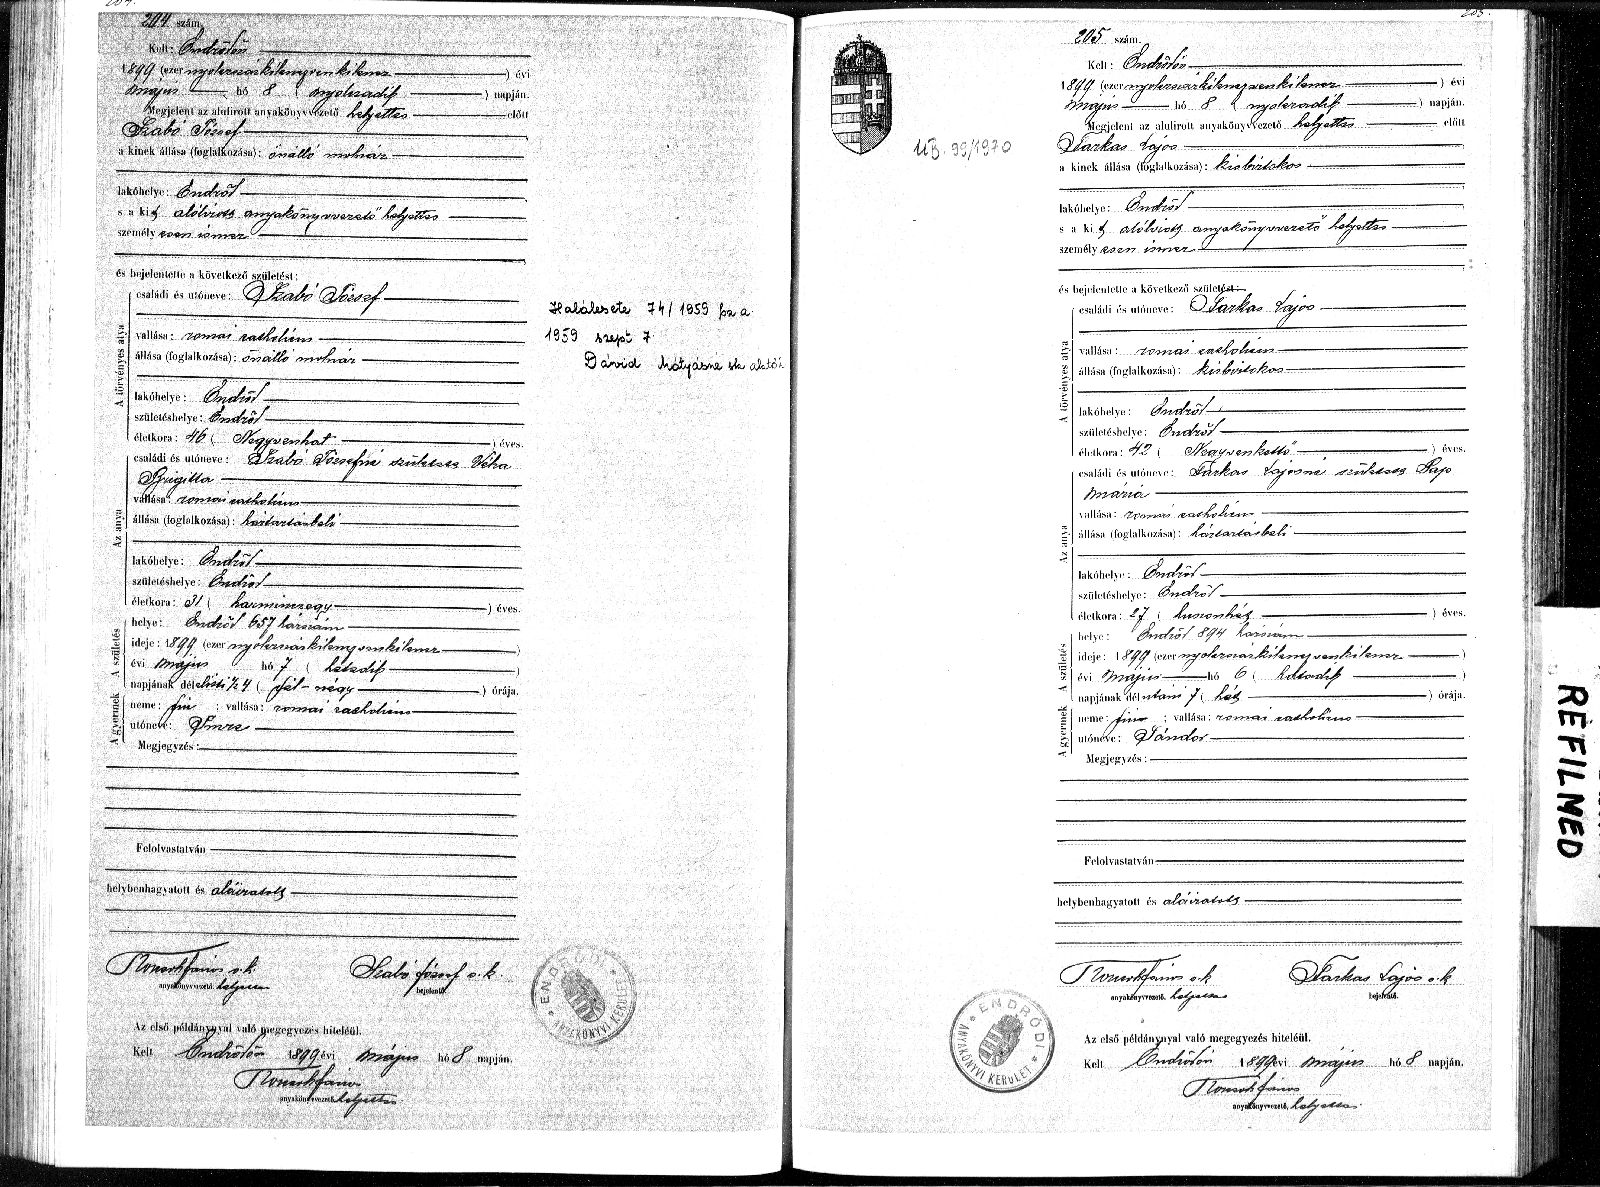 204 szám.
Kelt: Endrődön
1899 (ezer nyolczszázkilenczvenkilencz ) évi
május hó 8 ( nyolczadik ) napján.
Megjelent az alulirott anyakönyvvezető helyettes előtt
Szabó József
a kinek állása (foglalkozása): önálló molnár
lakóhelye: Endrőd
s a kit alólirott anyakönyvvezető helyettes
személyesen ismer
és bejelentette a következő születést:
A törvényes atya
családi és utóneve: Szabó József
vallása: római catholicus
állása (foglalkozása): önálló molnár
lakóhelye: Endrőd
születéshelye: Endrőd
életkora: 46 ( Negyvenhat ) éves.
Az anya
családi és utóneve: Szabó Józsefné született Véha
Brigitta
vallása: római catholicus
állása (foglalkozása): háztartásbeli
lakóhelye: Endrőd
születéshelye: Endrőd
életkora: 31 ( harminczegy ) éves.
A születés
helye: Endrőd 657 házszám
ideje: 1899 (ezer nyolczszázkilenczvenkilencz )
évi május hó 7 ( hetedik )
napjának délelőtti 1/2 4 ( fél-négy ) órája.
A gyermek
neme: fiu ; vallása: római catholicus
utóneve: Imre
Megjegyzés:
Felolvastatván
helybenhagyatott és aláiratott
Szabó József s. k.
anyakönyvvezető. helyettes
bejelentő.
Az első példánynyal való megegyezés hiteléül.
Kelt Endrődön 1899 évi május hó 8 napján.
anyakönyvvezető. helyettes
Halálesete 74/1959 fsz a.
1959 szept 7
Dávid Mátyásné sk
ENDRŐDI
ANYAKÖNYVI KERÜLET
205.
205 szám.
Kelt: Endrődön
1899 (ezer nyolczszázkilenczvenkilencz ) évi
május hó 8 ( nyolczadik ) napján.
Megjelent az alulirott anyakönyvvezető helyettes előtt
Farkas Lajos
a kinek állása (foglalkozása): kisbirtokos
lakóhelye: Endrőd
s a kit alólirott anyakönyvvezető helyettes
személyesen ismer
és bejelentette a következő születést:
A törvényes atya
családi és utóneve: Farkas Lajos
vallása: római catholicus
állása (foglalkozása): kisbirtokos
lakóhelye: Endrőd
születéshelye: Endrőd
életkora: 42 ( Negyvenkettő ) éves.
Az anya
családi és utóneve: Farkas Lajosné született
Mária
vallása: római catholicus
állása (foglalkozása): háztartásbeli
lakóhelye: Endrőd
születéshelye: Endrőd
életkora: 27 ( huszonhét ) éves.
A születés
helye: Endrőd 894 házszám
ideje: 1899 (ezer nyolczszázkilenczvenkilencz )
évi május hó 6 ( hatodik )
napjának délutáni 7 ( hét ) órája.
A gyermek
neme: fiu ; vallása: római catholicus
utóneve: Sándor
Megjegyzés:
Felolvastatván
helybenhagyatott és aláiratott
Farkas Lajos s. k.
anyakönyvvezető. helyettes
bejelentő.
Az első példánynyal való megegyezés hiteléül.
Kelt Endrődön 1899 évi május hó 8 napján.
anyakönyvvezető, helyettes
UB. 99/1970
ENDRŐDI
ANYAKÖNYVI KERÜLET
REFILMED